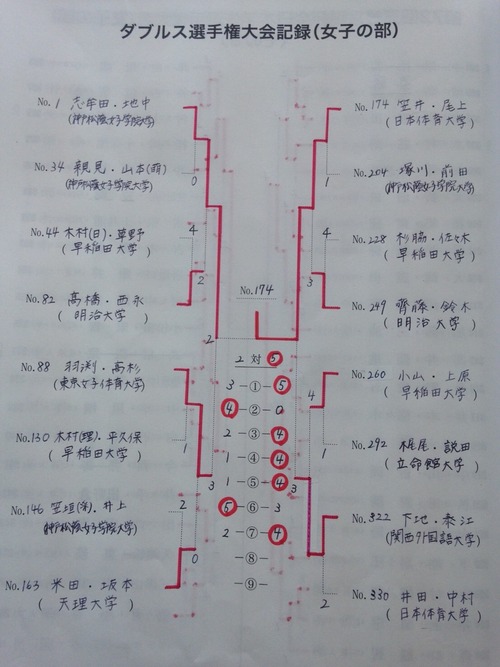 ダブルス選手権大会記録(女子の部)
No. 1 志牟田・地中
(神戸松蔭女子学院大学)
No. 34 親見・山本(萌)
(神戸松蔭女子学院大学)
0
No. 44 木村(日)・草野
(早稲田大学)
4
2
No. 82 高橋・西永
(明治大学)
2
No. 88 羽渕・高杉
(東京女子体育大学)
No. 130 木村(理)・平久保
(早稲田大学)
1
3
No. 146 笠垣(朱)・井上
(神戸松蔭女子学院大学)
2
0
No. 163 米田・坂本
(天理大学)
No. 174
2 対 5
3 ー①ー 5
4 ー②ー 0
2 ー③ー 4
1 ー④ー 4
1 ー⑤ー 4
5 ー⑥ー 3
2 ー⑦ー 4
ー⑧ー
ー⑨ー
No. 174 笠井・尾上
(日本体育大学)
No. 204 塚川・前田
(神戸松蔭女子学院大学)
1
No. 228 杉脇・佐々木
(早稲田大学)
4
3
No. 249 齊藤・鈴木
(明治大学)
No. 260 小山・上原
(早稲田大学)
4
No. 292 梶尾・説田
(立命館大学)
1
3
No. 322 下地・泰江
(関西外国語大学)
No. 330 井田・中村
(日本体育大学)
2